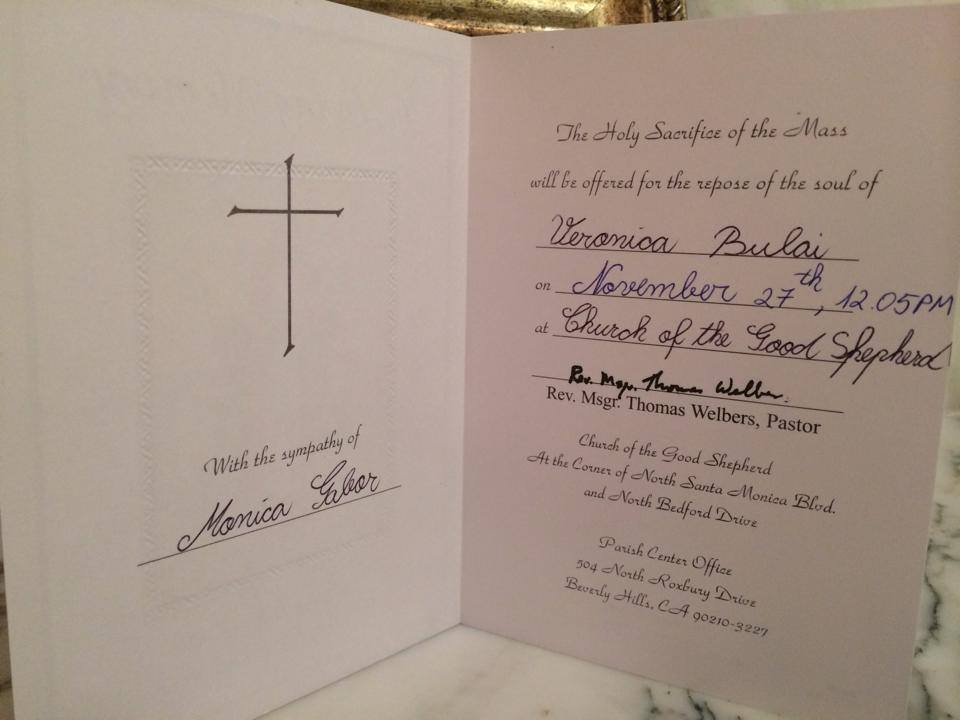 With the sympathy of
Monica Gabor
The Holy Sacrifice of the Mass
will be offered for the repose of the soul of
Veronica Bulai
on November 27th, 12.05PM
at Church of the Good Shepherd
Rev. Msgr. Thomas Welbers
Rev. Msgr. Thomas Welbers, Pastor
Church of the Good Shepherd
At the Corner of North Santa Monica Blvd.
and North Bedford Drive
Parish Center Office
504 North Roxbury Drive
Beverly Hills, CA 90210-3227